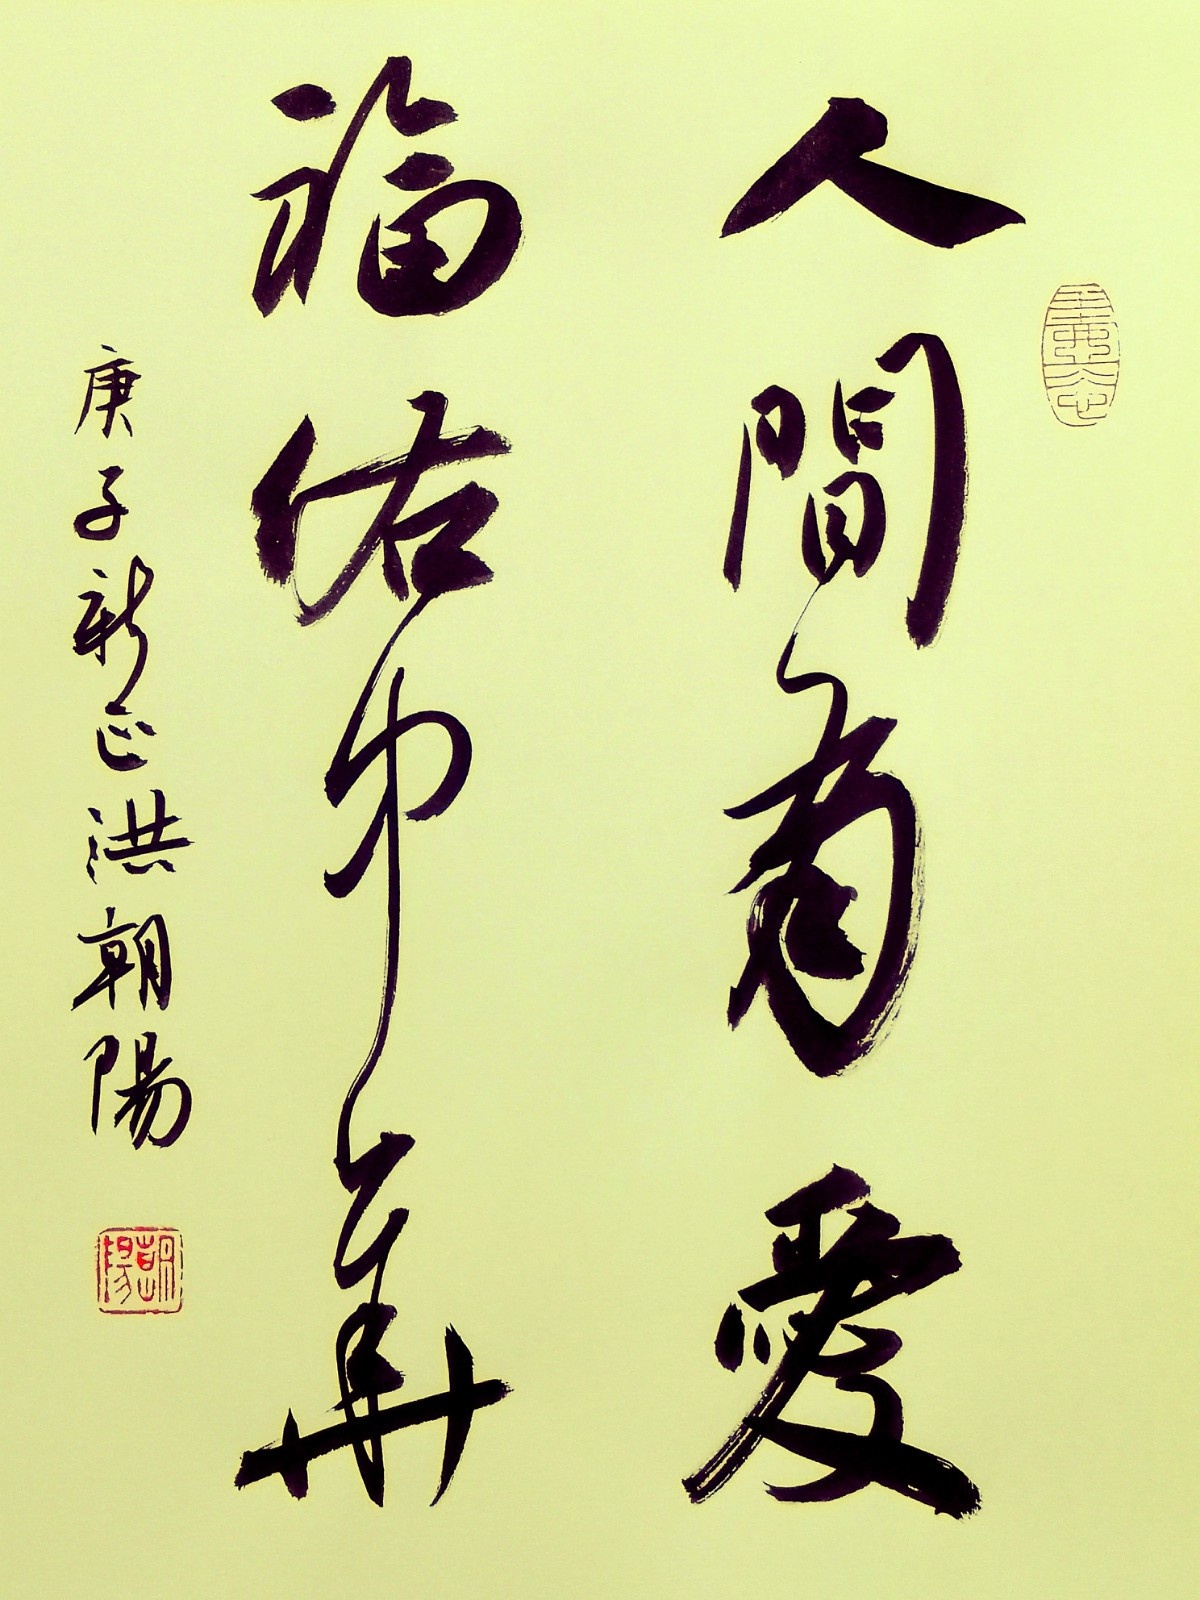 人間有愛
福佑中華
庚子新正洪朝陽
朝陽